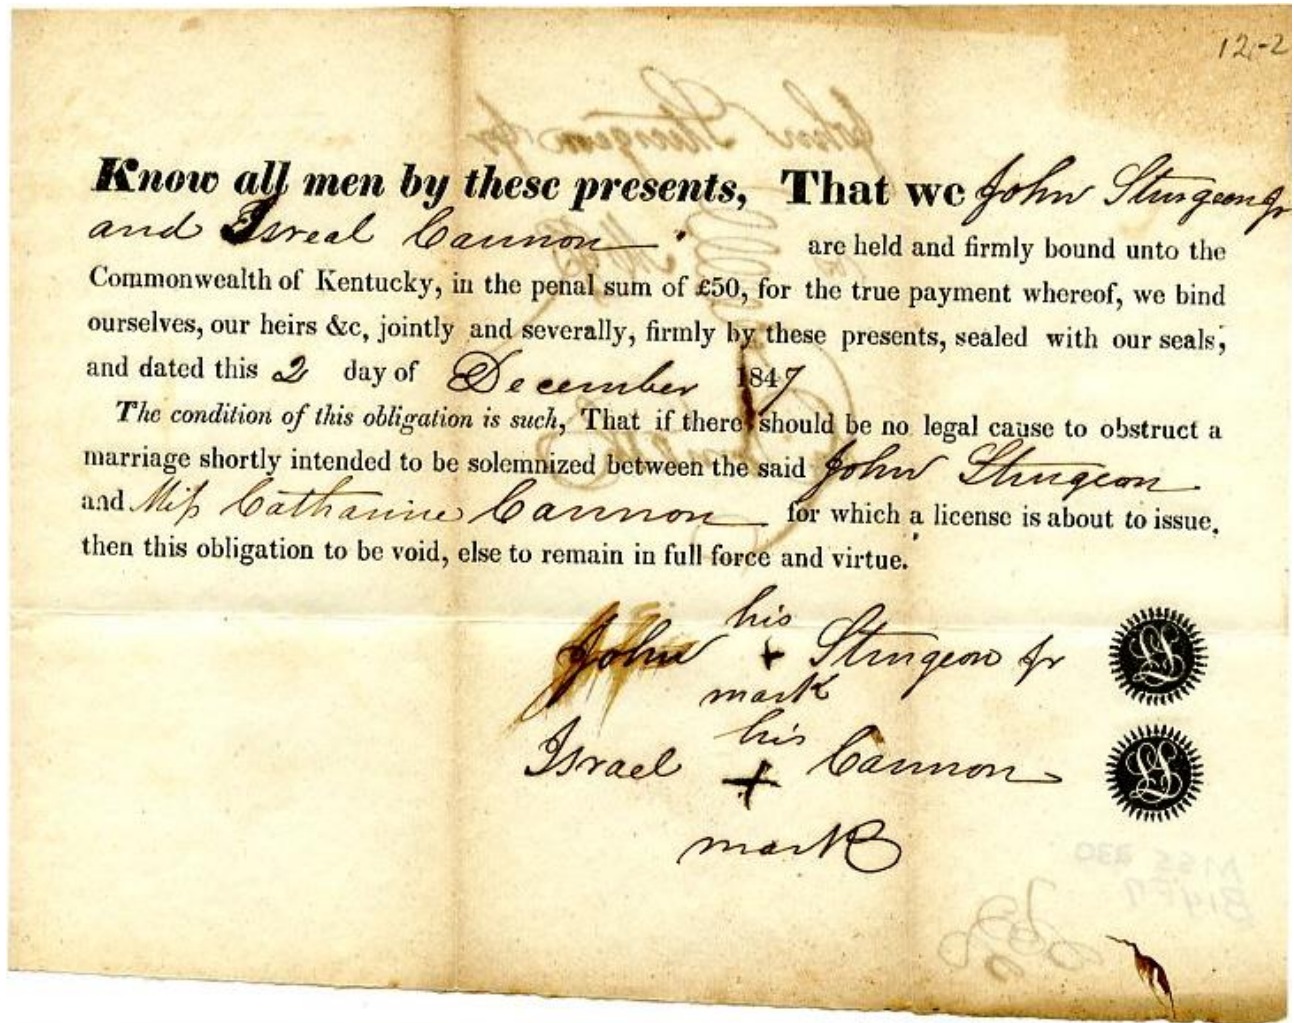 12-2
Know all men by these presents, That we John Sturgeon Jr
and Isreal Cannon are held and firmly bound unto the
Commonwealth of Kentucky, in the penal sum of £50, for the true payment whereof, we bind
ourselves, our heirs &c, jointly and severally, firmly by these presents, sealed with our seals,
and dated this 2 day of December 1847
The condition of this obligation is such, That if there should be no legal cause to obstruct a
marriage shortly intended to be solemnized between the said John Sturgeon
and Miss Catharine Cannon for which a license is about to issue,
then this obligation to be void, else to remain in full force and virtue.
his
John + Sturgeon Jr
mark
his
Israel + Cannon
mark